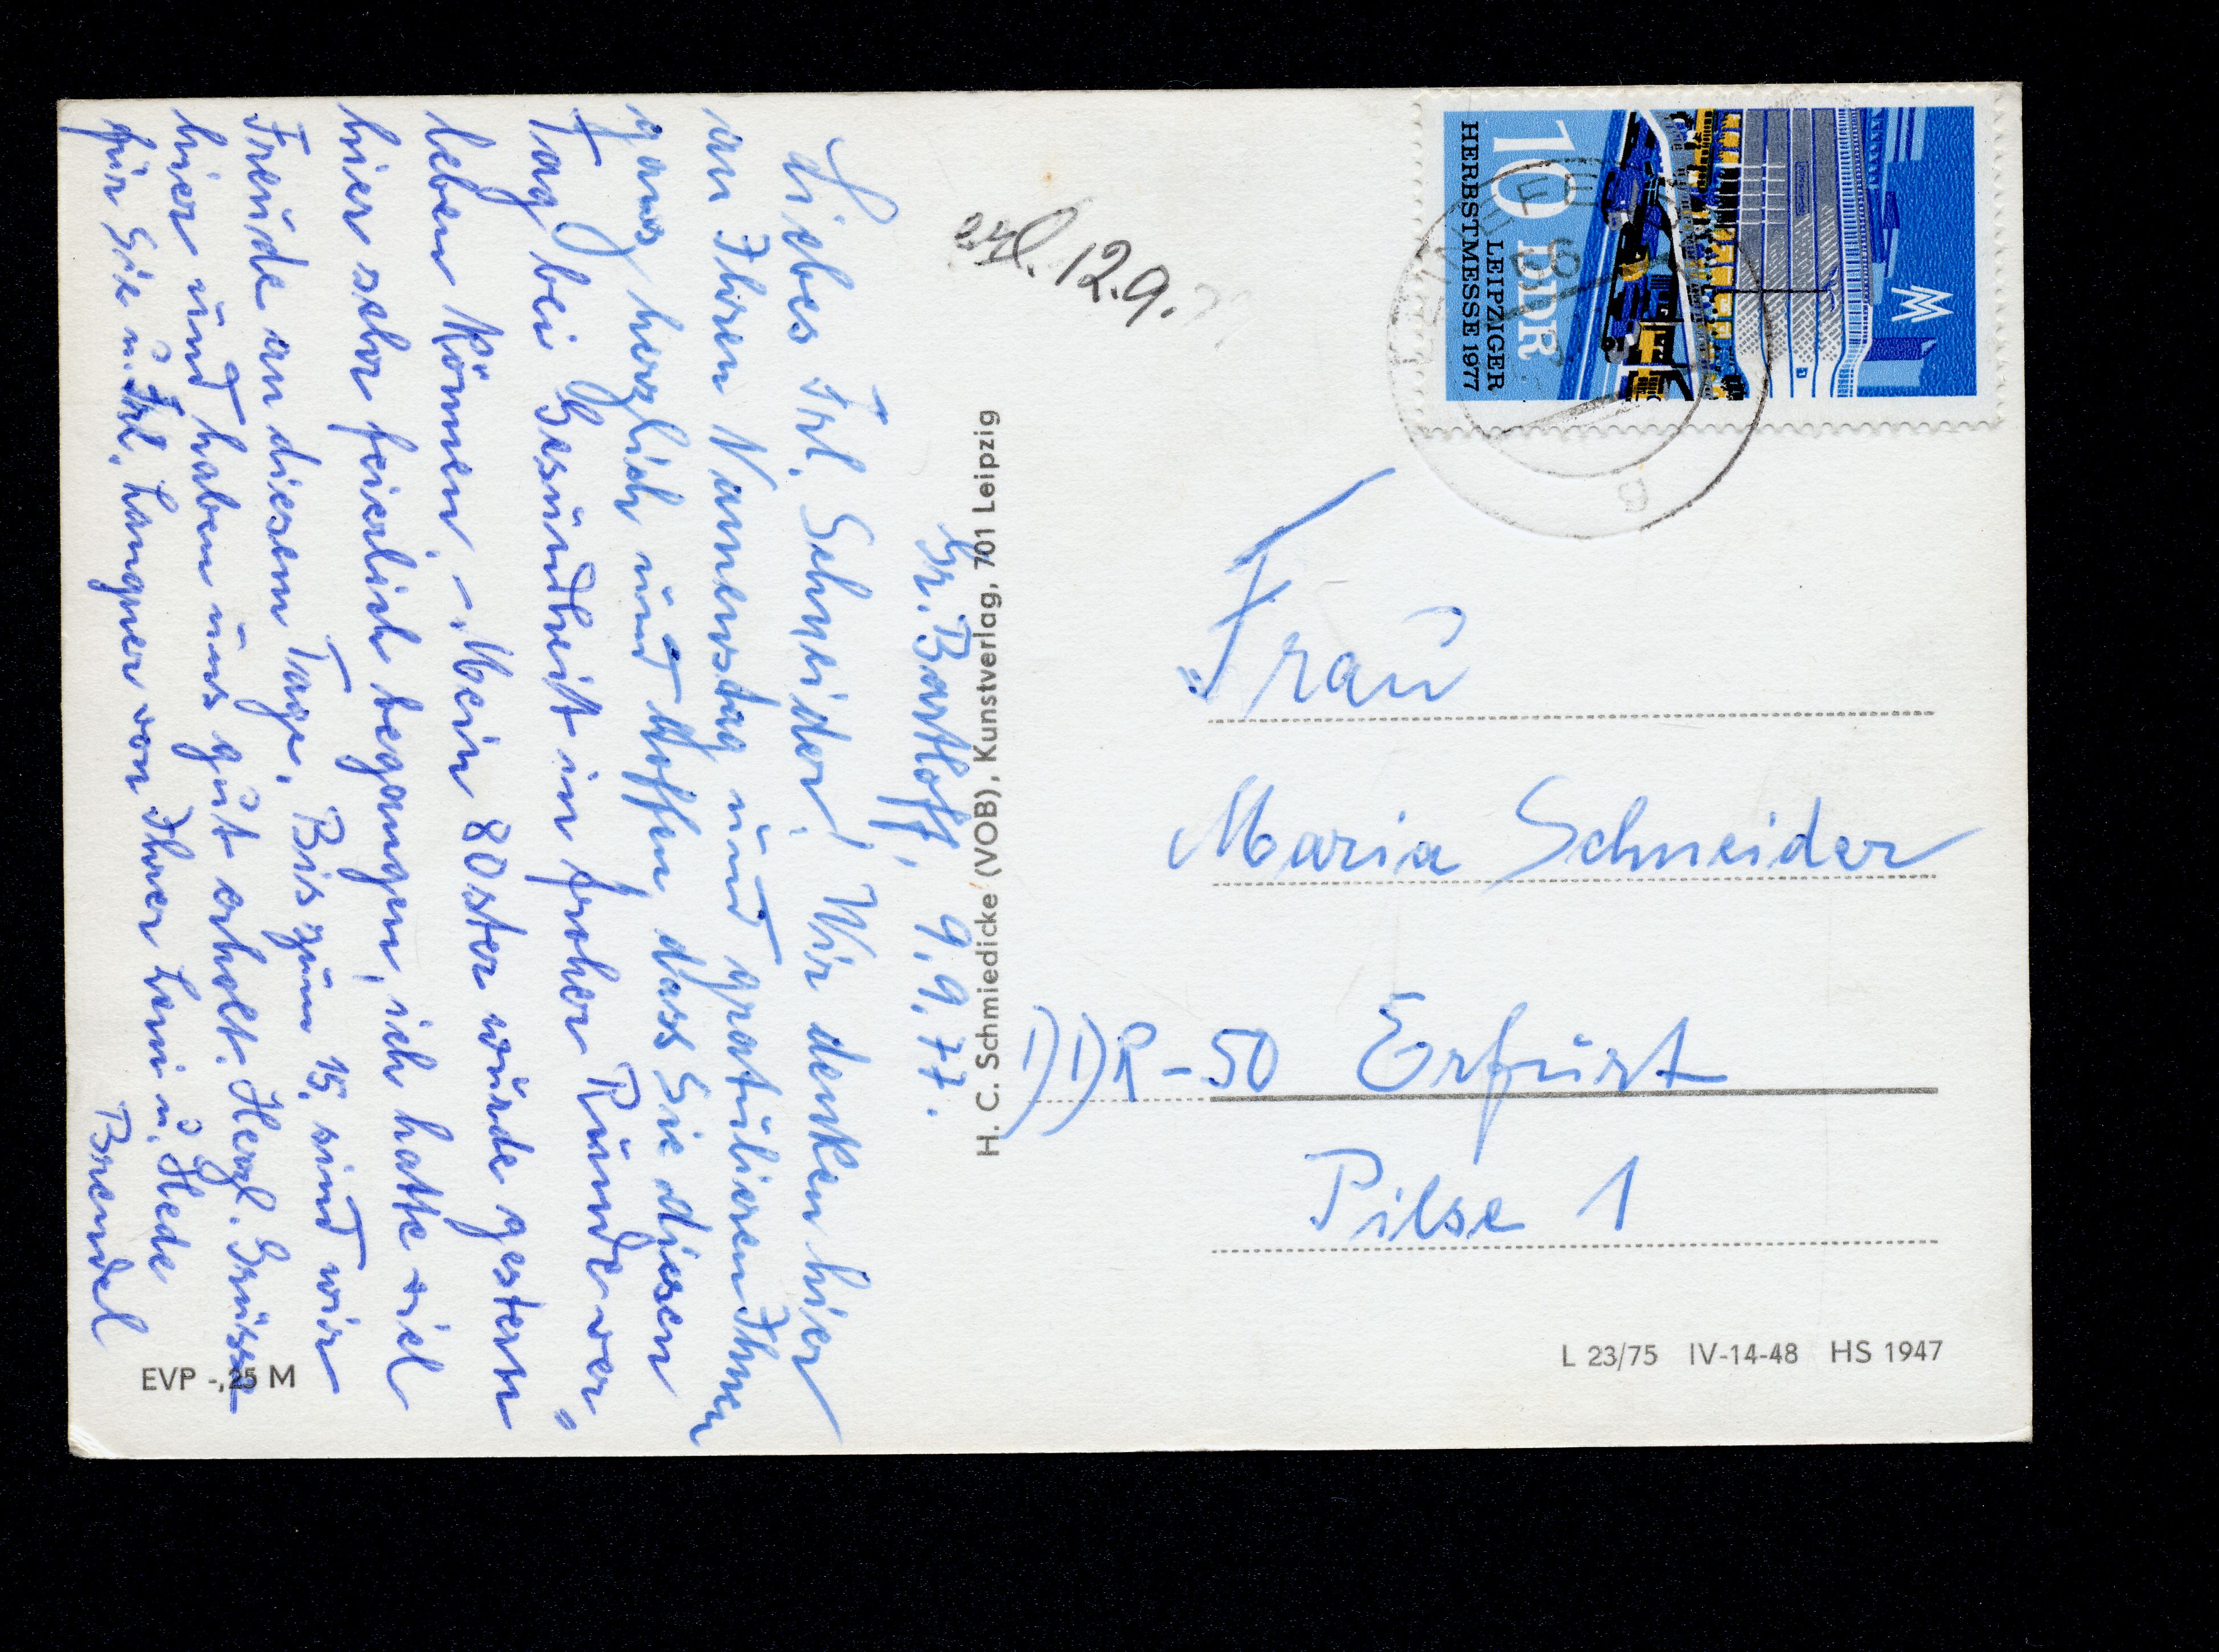 Gr. Bartloff, 9.9.77.
Liebes Frl. Schneider! Wir denken hier
an Ihren Namenstag und gratulieren Ihnen
ganz herzlich und hoffen, dass Sie diesen
Tag bei Gesundheit in froher Runde ver-
leben können. - Mein 80ster wurde gestern
hier sehr feierlich begangen, ich hatte viel
Freude an diesem Tage. Bis zum 15. sind wir
hier und haben uns gut erholt. Herzl. Grüsse
für Sie u. Frl. Langner von Ihrer Leni u. Hede
Brendel
EVP -,25 M
H. C. Schmiedicke (VOB), Kunstverlag, 701 Leipzig
12.9.
10 DDR
LEIPZIGER
HERBSTMESSE 1977
Frau
Maria Schneider
DDR-50 Erfurt
Pilse 1
L 23/75 IV-14-48 HS 1947